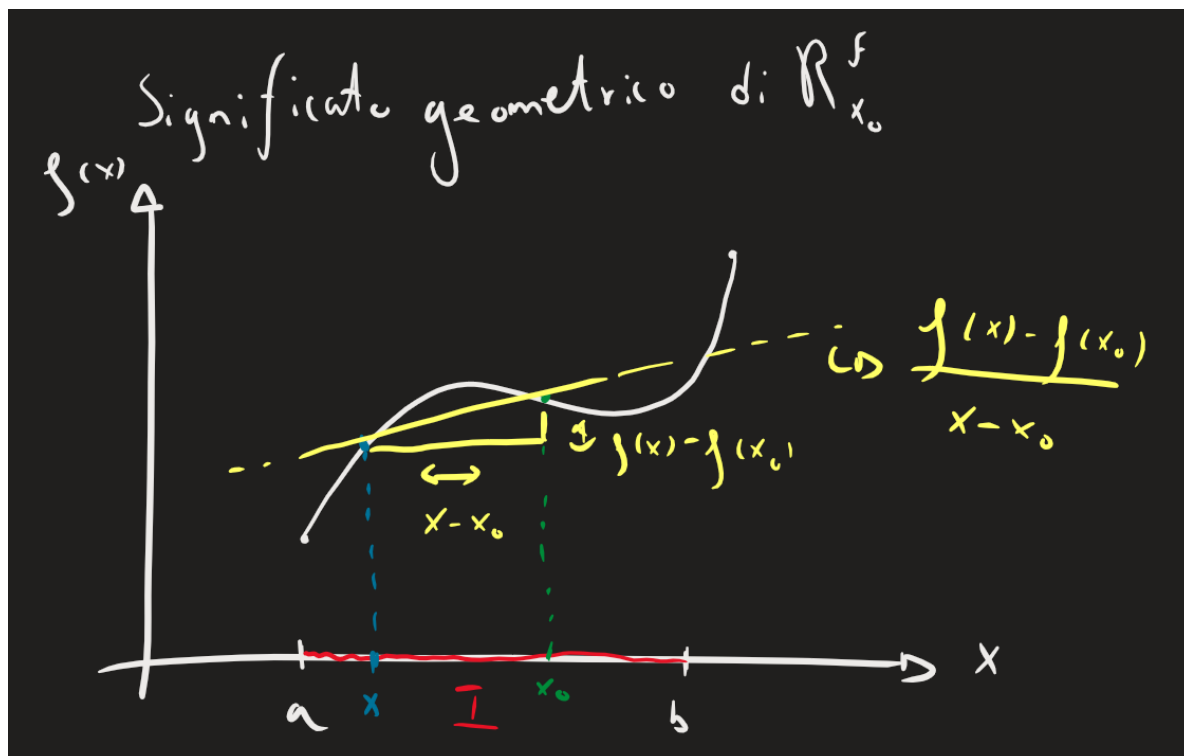 Significato geometrico di R^f_{x_0}
f(x)
cos (f(x) - f(x_0)) / (x - x_0)
f(x) - f(x_0)
x - x_0
x
a x I x_0 b